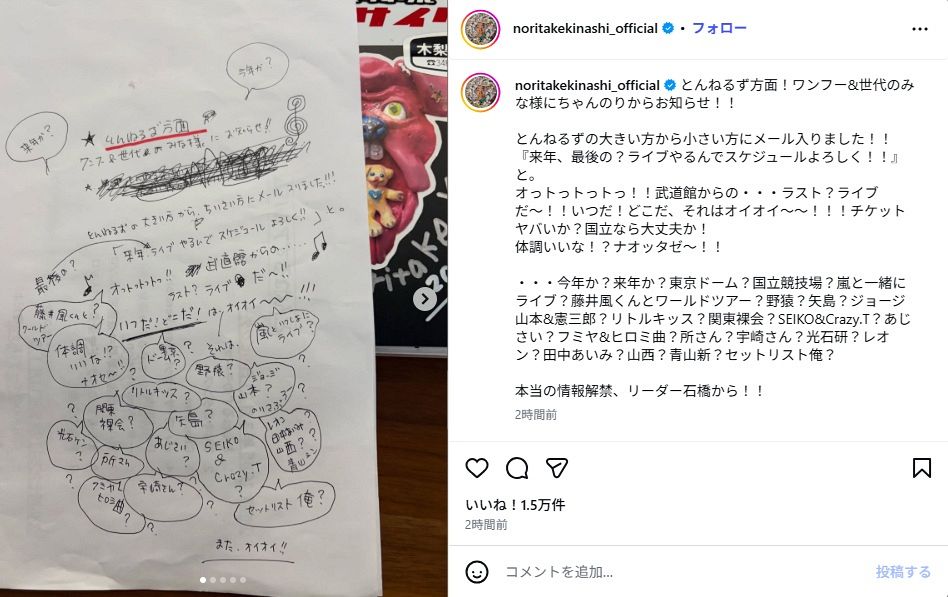 今年か？
来年か？
★とんねるず方面
ワンフー&世代のみな様にお知らせ!!
★
とんねるずの大きい方から、ちいさい方にメール入りました!!!
「来年ライブやるんでスケジュールよろしく!!」と。
最後の？
オットットット!! 武道館からの……
ラスト？ライブだ〜!!
いつだ！どこだ！は、オイオイ〜〜!!!
それは、
藤井風くんと？
ワールドツアー？
体調いいな!？ナオセ〜!!
東京ドーム？
野猿？
嵐といっしょにライブ？
リトルキッズ？
ジョージ山本？
関東裸会？
矢島？
光石ケン？
所さん
あじさい？
SEIKO & Crazy.T？
レオン
田中あいみ
山西？
青山シン？
フミヤ&ヒロミ曲？
宇崎さん？
セットリスト俺？
また、オイオイ!!
サイ
木梨
noritakekinashi_official • フォロー
noritakekinashi_official とんねるず方面！ワンフー&世代のみ
な様にちゃんのりからお知らせ！！
とんねるずの大きい方から小さい方にメール入りました！！
『来年、最後の？ライブやるんでスケジュールよろしく！！』
と。
オっトっトっトっ！！武道館からの・・・ラスト？ライブ
だ〜！！いつだ！どこだ、それはオイオイ〜〜！！！チケット
ヤバいか？国立なら大丈夫か！
体調いいな！？ナオッタゼ〜！！
・・・今年か？来年か？東京ドーム？国立競技場？嵐と一緒に
ライブ？藤井風くんとワールドツアー？野猿？矢島？ジョージ
山本&憲三郎？リトルキッス？関東裸会？SEIKO&Crazy.T？あじ
さい？フミヤ&ヒロミ曲？所さん？宇崎さん？光石研？レオ
ン？田中あいみ？山西？青山新？セットリスト俺？
本当の情報解禁、リーダー石橋から！！
2時間前
いいね！1.5万件
2時間前
コメントを追加...
投稿する